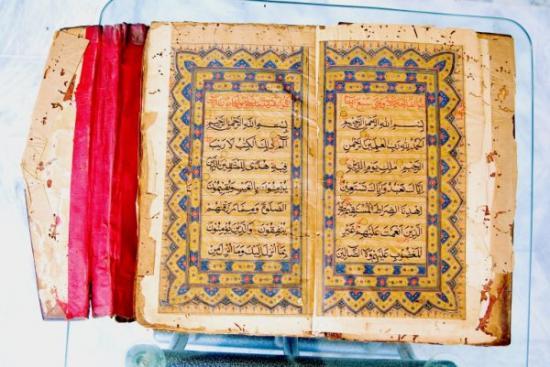 بِسْمِ اللهِ الرَّحْمنِ الرَّحِيمِ
اَلْحَمْدُ لِلّهِ رَبِّ الْعلَمِينَ الرَّحْمنِ
الرَّحِيمِ ملِكِ يَوْمِ الدِّينِ
اِيَّاكَ نَعْبُدُ وَاِيَّاكَ نَسْتَعِينُ
اِهْدِنَا الصِّرَاطَ الْمُسْتَقِيمَ صِرَاطَ
الَّذِينَ اَنْعَمْتَ عَلَيْهِمْ غَيْرِ
الْمَغْضُوبِ عَلَيْهِمْ وَلَا الضَّالِّينَ
بِسْمِ اللهِ الرَّحْمنِ الرَّحِيمِ
الم ذلِكَ الْكِتبُ لَا رَيْبَ
فِيهِ هُدًى لِلْمُتَّقِينَ الَّذِينَ
يُؤْمِنُونَ بِالْغَيْبِ وَيُقِيمُونَ
الصَّلوةَ وَمِمَّا رَزَقْنهُمْ
يُنْفِقُونَ وَالَّذِينَ يُؤْمِنُونَ
بِمَا اُنْزِلَ اِلَيْكَ وَمَا اُنْزِلَ مِنْ